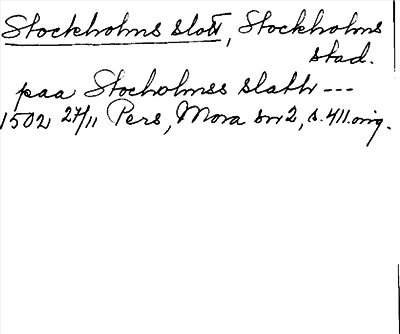 Stockholms slott, Stockholms
stad.
paa Stocholmss slatth ---
1502 27/11 Pers, Mora sn 2, s. 411. orig.